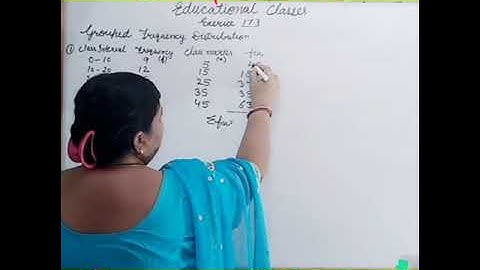 Educational Classes
Exercise 17.3
Grouped Frequency Distribution
① Class Interval Frequency (f) Class marks (x) fx
0-10 9 5 4
10-20 12 15 1
25 3
35 3
45 63
Σfx